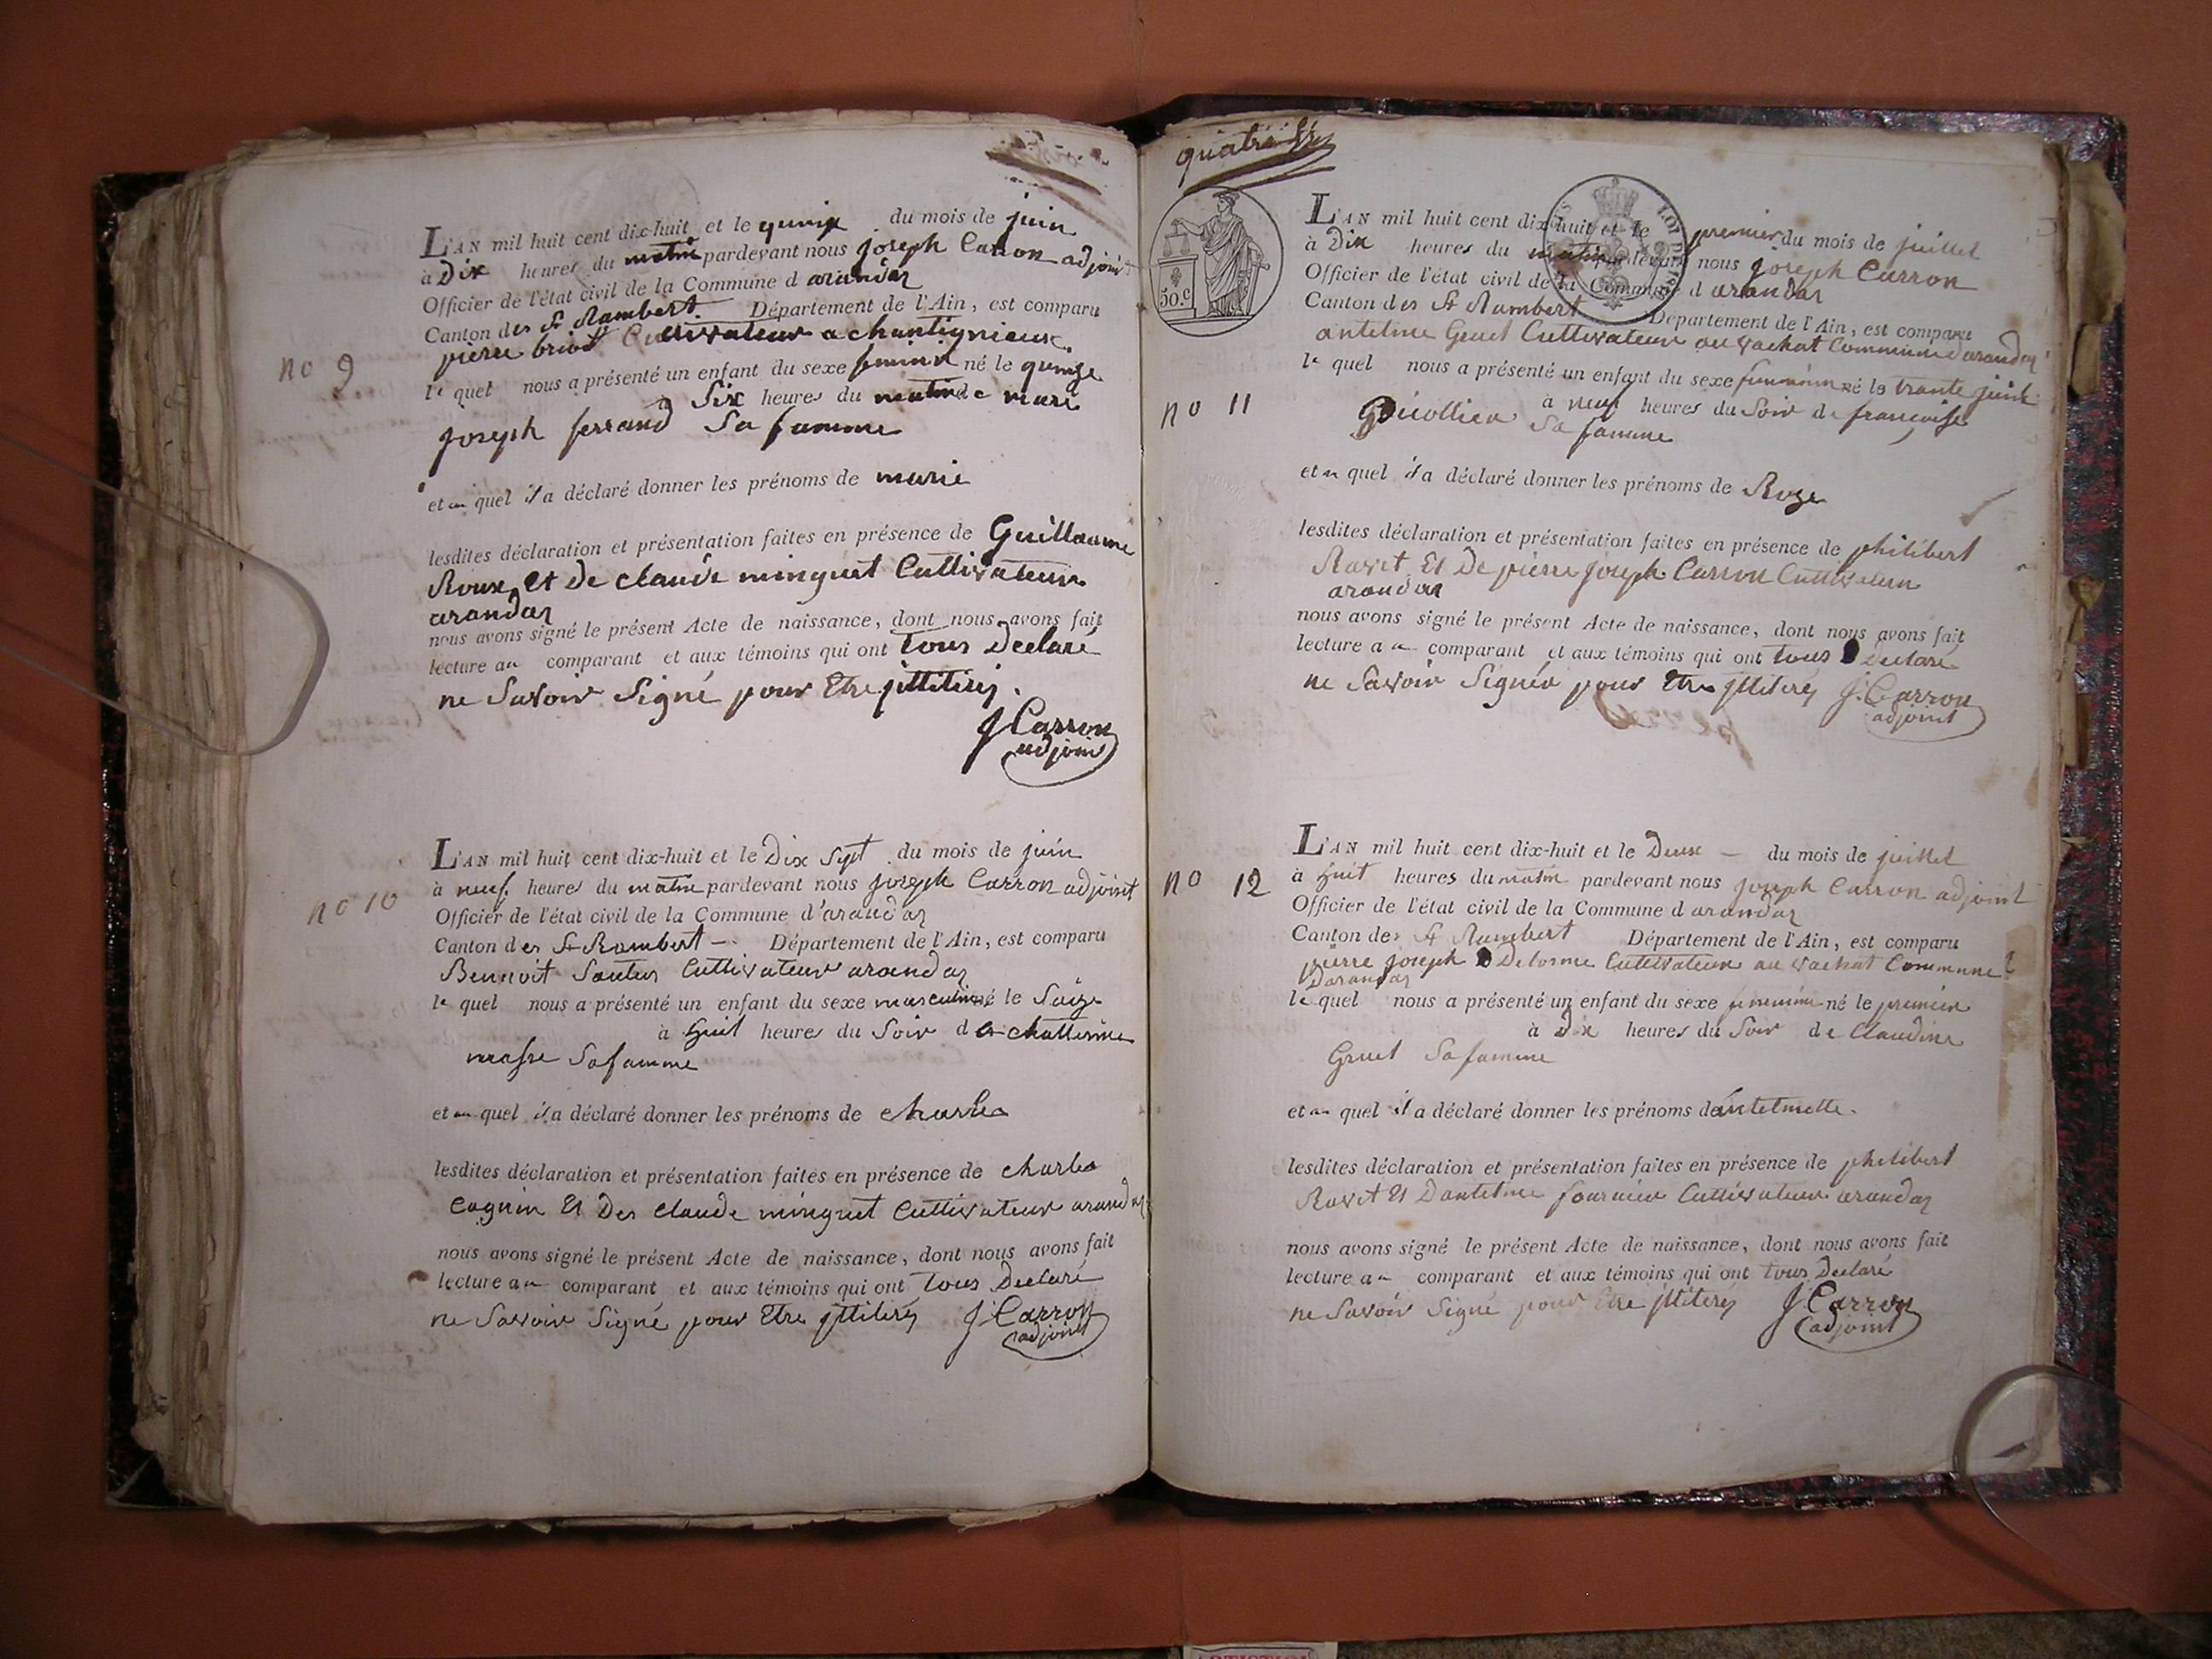 no 9
L'AN mil huit cent dix-huit et le quinze du mois de juin
à Dix heures du matin pardevant nous joseph Carron adjoint
Officier de l'état civil de la Commune d arandas
Canton des St Rambert Département de l'Ain, est comparu
pierre briod Cultivateur a chantignieux
le quel nous a présenté un enfant du sexe feminin né le quinze
à Six heures du matin de marie
joseph ferrand Sa famme
et au quel il a déclaré donner les prénoms de marie
lesdites déclaration et présentation faites en présence de Guillaume
Roux Et De claude minguet Cultivateur
arandas
nous avons signé le présent Acte de naissance, dont nous avons fait
lecture au comparant et aux témoins qui ont tous Declaré
ne Savoir Signé pour Etre jllitirés.
J Carron
adjoint
no 10
L'AN mil huit cent dix-huit et le Dix Sept du mois de juin
à neuf heures du matin pardevant nous joseph Carron adjoint
Officier de l'état civil de la Commune d'arandas
Canton des St Rambert Département de l'Ain, est comparu
Bennoit Cultivateur arandas
le quel nous a présenté un enfant du sexe masculin né le Saize
à huit heures du Soir de chatterine
masse Sa famme
et au quel il a déclaré donner les prénoms de charles
lesdites déclaration et présentation faites en présence de charles
Cognin Et Des claude minguet Cultivateur arandas
nous avons signé le présent Acte de naissance, dont nous avons fait
lecture au comparant et aux témoins qui ont tous Declaré
ne Savoir Signé pour Etre jllitirés J Carron
adjoint
quatre
50.C
no 11
L'AN mil huit cent dix-huit et le premier du mois de juillet
à Dix heures du matin pardevant nous joseph Carron
Officier de l'état civil de la Commune d arandas
Canton des St Rambert Département de l'Ain, est comparu
antelme Gruet Cultivateur au vachat Commune d arandas
le quel nous a présenté un enfant du sexe feminin né le trante juin
à neuf heures du Soir de francoise
Sa famme
et au quel il a déclaré donner les prénoms de Roze
lesdites déclaration et présentation faites en présence de philibert
Ravet Et De pierre joseph Carron Cultivateur
arandas
nous avons signé le présent Acte de naissance, dont nous avons fait
lecture au comparant et aux témoins qui ont tous Declaré
ne Savoir Signér pour Etre jllitirés J. Carron
adjoint
no 12
L'AN mil huit cent dix-huit et le Deux du mois de juillet
à huit heures du matin pardevant nous joseph Carron adjoint
Officier de l'état civil de la Commune d arandas
Canton des St Rambert Département de l'Ain, est comparu
pierre joseph Delorme Cultivateur au vachat Commune
Darandas
le quel nous a présenté un enfant du sexe feminin né le premier
à Dix heures du Soir de Claudine
Gruet Sa famme
et au quel il a déclaré donner les prénoms de antelmette.
lesdites déclaration et présentation faites en présence de philibert
Ravet Et Dantelme fournier Cultivateur arandas
nous avons signé le présent Acte de naissance, dont nous avons fait
lecture au comparant et aux témoins qui ont tous Declaré
ne Savoir Signé pour Etre jllitirés J Carron
adjoint